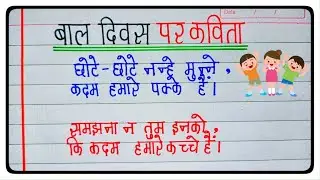 बाल दिवस पर कविता
छोटे-छोटे नन्हे मुन्ने,
कदम हमारे पक्के हैं।
समझना न तुम इनको,
कि कदम हमारे कच्चे हैं।